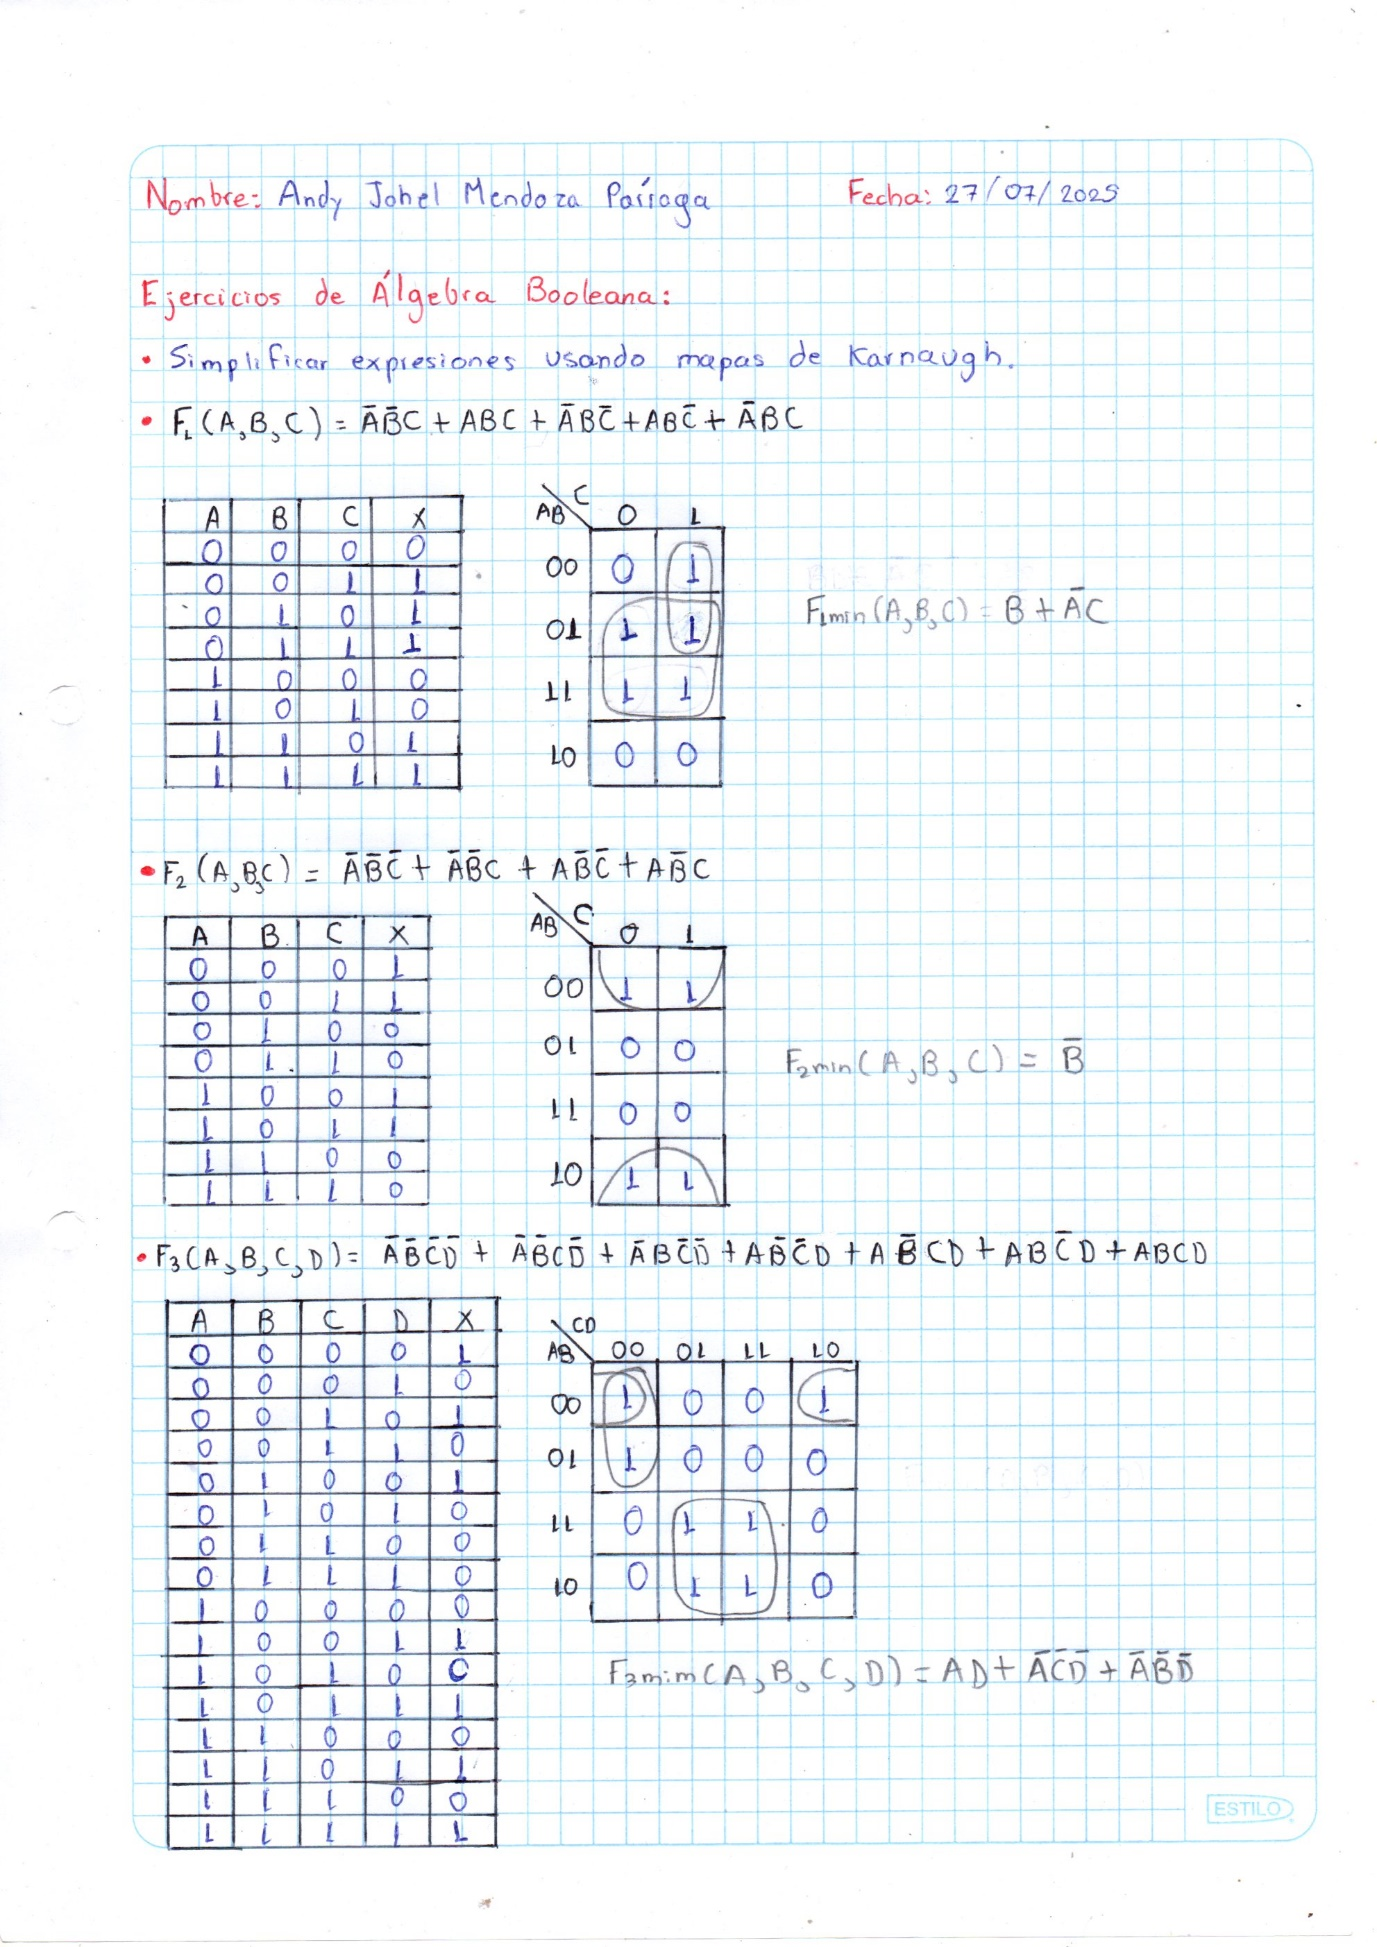 Nombre: Andy Johel Mendoza Paíraga Fecha: 27/07/2025
Ejercicios de Álgebra Booleana:
• Simplificar expresiones usando mapas de Karnaugh.
• F₁(A,B,C) = A̅B̅C + ABC + A̅BC̅ + ABC̅ + A̅BC
A B C X
0 0 0 0
0 0 1 1
0 1 0 1
0 1 1 1
1 0 0 0
1 0 1 0
1 1 0 1
1 1 1 1
AB C 0 1
00 0 1
01 1 1
11 1 1
10 0 0
F₁min(A,B,C) = B + A̅C
• F₂(A,B,C) = A̅B̅C̅ + A̅B̅C + AB̅C̅ + AB̅C
A B C X
0 0 0 1
0 0 1 1
0 1 0 0
0 1 1 0
1 0 0 1
1 0 1 1
1 1 0 0
1 1 1 0
AB C 0 1
00 1 1
01 0 0
11 0 0
10 1 1
F₂min(A,B,C) = B̅
• F₃(A,B,C,D) = A̅B̅C̅D̅ + A̅B̅CD̅ + A̅BC̅D̅ + AB̅C̅D + AB̅CD + ABC̅D + ABCD
A B C D X
0 0 0 0 1
0 0 0 1 0
0 0 1 0 1
0 0 1 1 0
0 1 0 0 1
0 1 0 1 0
0 1 1 0 0
0 1 1 1 0
1 0 0 0 0
1 0 0 1 1
1 0 1 0 0
1 0 1 1 1
1 1 0 0 0
1 1 0 1 1
1 1 1 0 0
1 1 1 1 1
AB CD 00 01 11 10
00 1 0 0 1
01 1 0 0 0
11 0 1 1 0
10 0 1 1 0
F₃mim(A,B,C,D) = AD + A̅C̅D̅ + A̅B̅D̅
ESTILO